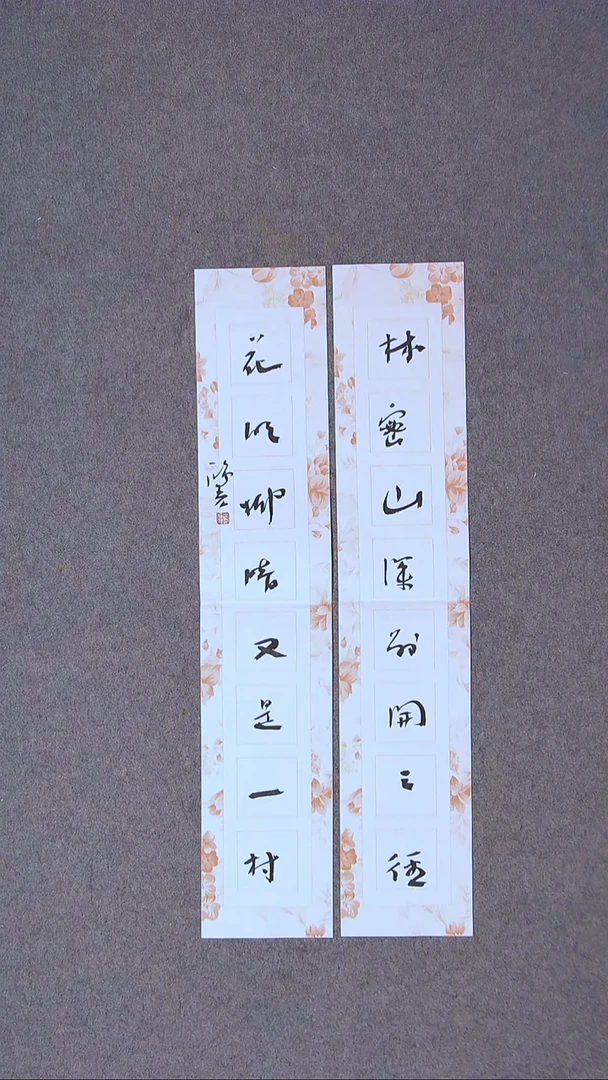 林密山深別開三徑
花明柳暗又是一村